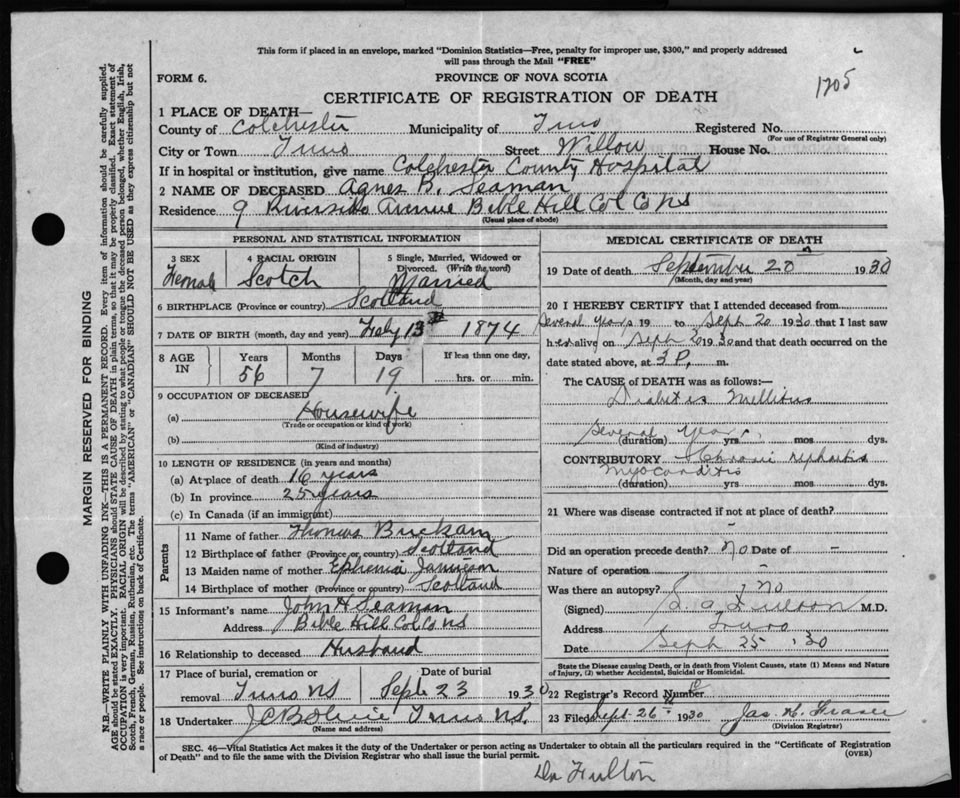 This form if placed in an envelope, marked "Dominion Statistics—Free, penalty for improper use, $300," and properly addressed
will pass through the Mail "FREE"
FORM 6.
PROVINCE OF NOVA SCOTIA
1205
CERTIFICATE OF REGISTRATION OF DEATH
1 PLACE OF DEATH—
County of Colchester Municipality of Truro Registered No.
(For use of Registrar General only)
City or Town Truro Street Willow House No.
If in hospital or institution, give name Colchester County Hospital
2 NAME OF DECEASED Agnes B. Seaman
Residence 9 Riverside Avenue Bible Hill Col Co NS
(Usual place of abode)
PERSONAL AND STATISTICAL INFORMATION
3 SEX 4 RACIAL ORIGIN 5 Single, Married, Widowed or
Divorced. (Write the word)
Female Scotch Married
6 BIRTHPLACE (Province or country) Scotland
7 DATE OF BIRTH (month, day and year) Feby 13 1874
8 AGE IN Years Months Days If less than one day,
56 7 19 hrs. or min.
9 OCCUPATION OF DECEASED
(a) Housewife
(Trade or occupation or kind of work)
(b)
(Kind of industry)
10 LENGTH OF RESIDENCE (in years and months)
(a) At place of death 16 years
(b) In province 25 years
(c) In Canada (if an immigrant)
Parents
11 Name of father Thomas
12 Birthplace of father (Province or country) Scotland
13 Maiden name of mother Ephemia Jamieson
14 Birthplace of mother (Province or country) Scotland
15 Informant's name John H Seaman
Address Bible Hill Col Co NS
16 Relationship to deceased Husband
17 Place of burial, cremation or Date of burial
removal Truro NS Sept 23 1930
18 Undertaker Truro NS.
(Name and address)
MEDICAL CERTIFICATE OF DEATH
19 Date of death September 20 1930
(Month, day and year)
20 I HEREBY CERTIFY that I attended deceased from
Several years 19 to Sept 20 1930 that I last saw
her alive on Sept 1930 and that death occurred on the
date stated above, at 3 P. m.
The CAUSE of DEATH was as follows:—
Diabetis Mellitus
Several Years
(duration) yrs. mos dys.
CONTRIBUTORY Chronic nephritis
Myocarditis
(duration) yrs. mos dys.
21 Where was disease contracted if not at place of death?
-
Did an operation precede death? no Date of -
Nature of operation -
Was there an autopsy? no
(Signed) M.D.
Address Truro
Date Sept 25 '30
State the Disease causing Death, or in death from Violent Causes, state (1) Means and Nature
of Injury, (2) whether Accidental, Suicidal or Homicidal.
22 Registrar's Record Number
23 Filed Sept 26 1930 Jas. H. Fraser
(Division Registrar)
SEC. 46—Vital Statistics Act makes it the duty of the Undertaker or person acting as Undertaker to obtain all the particulars required in the "Certificate of Registration
of Death" and to file the same with the Division Registrar who shall issue the burial permit.
(OVER)
Dr Fulton
MARGIN RESERVED FOR BINDING
N.B.—WRITE PLAINLY WITH UNFADING INK—THIS IS A PERMANENT RECORD. Every item of information should be carefully supplied.
AGE should be stated EXACTLY. PHYSICIANS should STATE CAUSE OF DEATH in plain terms, so that it may be properly classified. Exact statement of
OCCUPATION is very important. RACIAL ORIGIN will be described by stating to what people or tongue the deceased person belonged, whether English, Irish,
Scotch, French, German, Russian, Ruthenian, etc. The terms "AMERICAN" or "CANADIAN" SHOULD NOT BE USED as they express citizenship but not
a race or people. See instructions on back of Certificate.